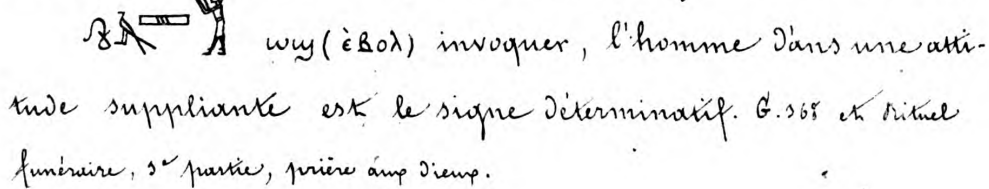 ⲱϣ (ⲉ̀ⲃⲟⲗ) invoquer, l'homme dans une atti-
tude suppliante est le signe déterminatif. G. 368 et Rituel
funéraire, 3e partie, prière aux Dieux.